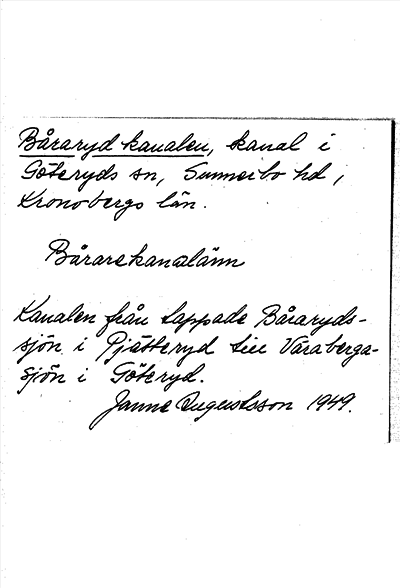 Båraryd kanalen, kanal i
Göteryds sn, Sunnerbo hd,
Kronobergs län.
Bårarekanalänn
Kanalen från tappade Båraryds-
sjön i Pjätteryd till Varaberga-
sjön i Göteryd.
Janne Augustsson 1949.